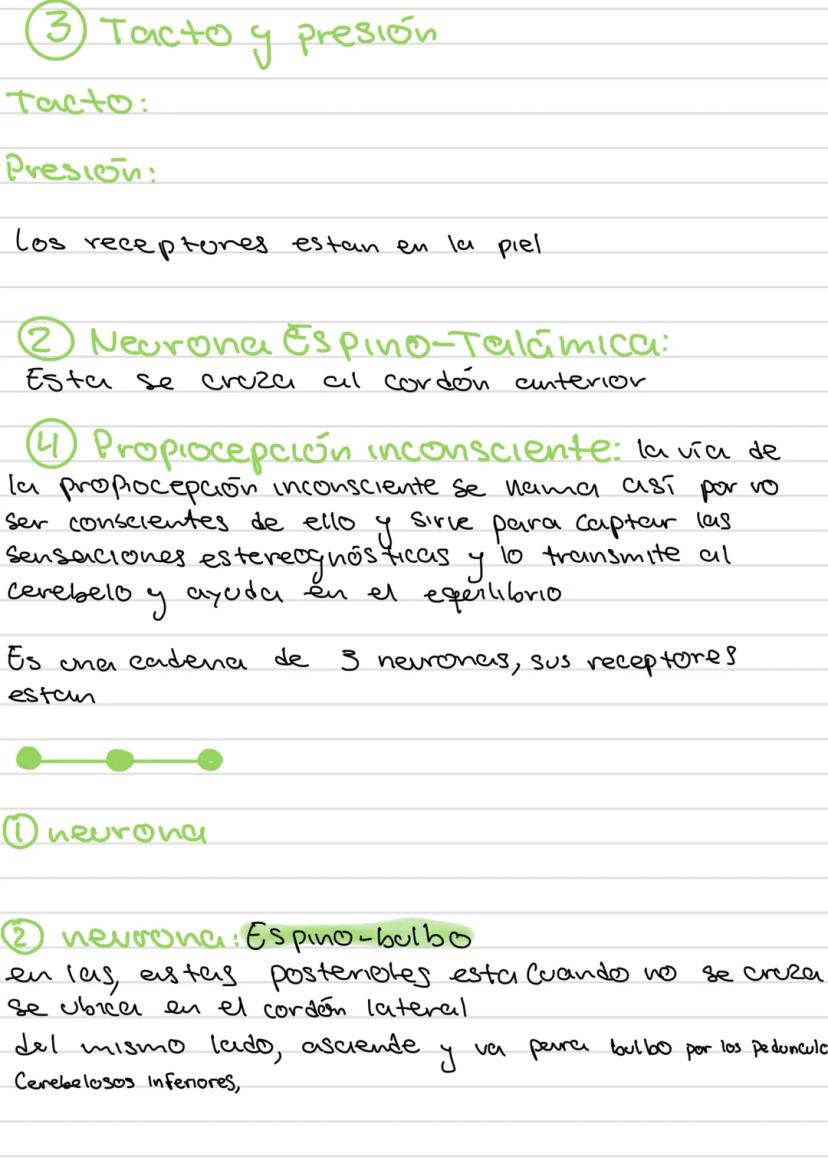 ③ Tacto y presión
Tacto:
Presión:
Los receptores estan en la piel
② Neurona Espino-Talámica:
Esta se cruza al cordón anterior
④ Propiocepción inconsciente: la vía de
la propiocepción inconsciente se llama así por no
ser conscientes de ello y sirve para captar las
sensaciones estereognósticas y lo transmite al
cerebelo y ayuda en el equilibrio
Es una cadena de 3 neuronas, sus receptores
estan
① neurona
② neurona: Espino-bulbo
en las, astas posteriores esta Cuando no se cruza
se ubica en el cordón lateral
del mismo lado, asciende y va para bulbo por los pedunculo
Cerebelosos Inferiores,